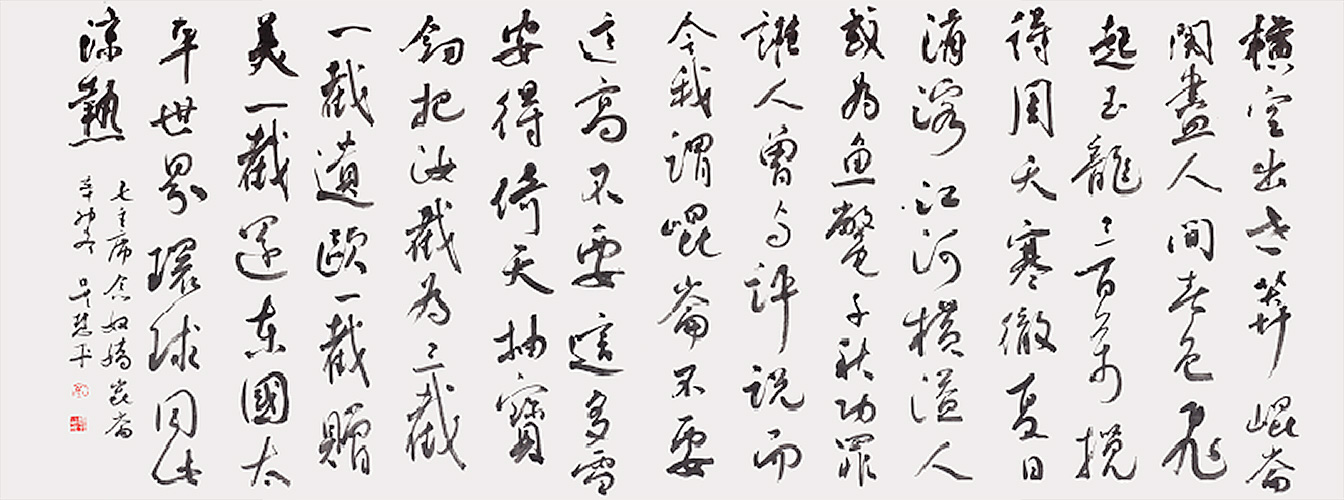 橫空出世莽崐崙
閱盡人間春色飛
起玉龍三百萬攪
得周天寒徹夏日
消溶江河橫溢人
或為魚鱉千秋功罪
誰人曾與評說而
今我謂崐崙不要
這高不要這多雪
安得倚天抽寶
劍把汝截為三截
一截遺歐一截贈
美一截還東國太
平世界環球同此
涼熱
毛主席念奴嬌崑崙
冬 吳慧平